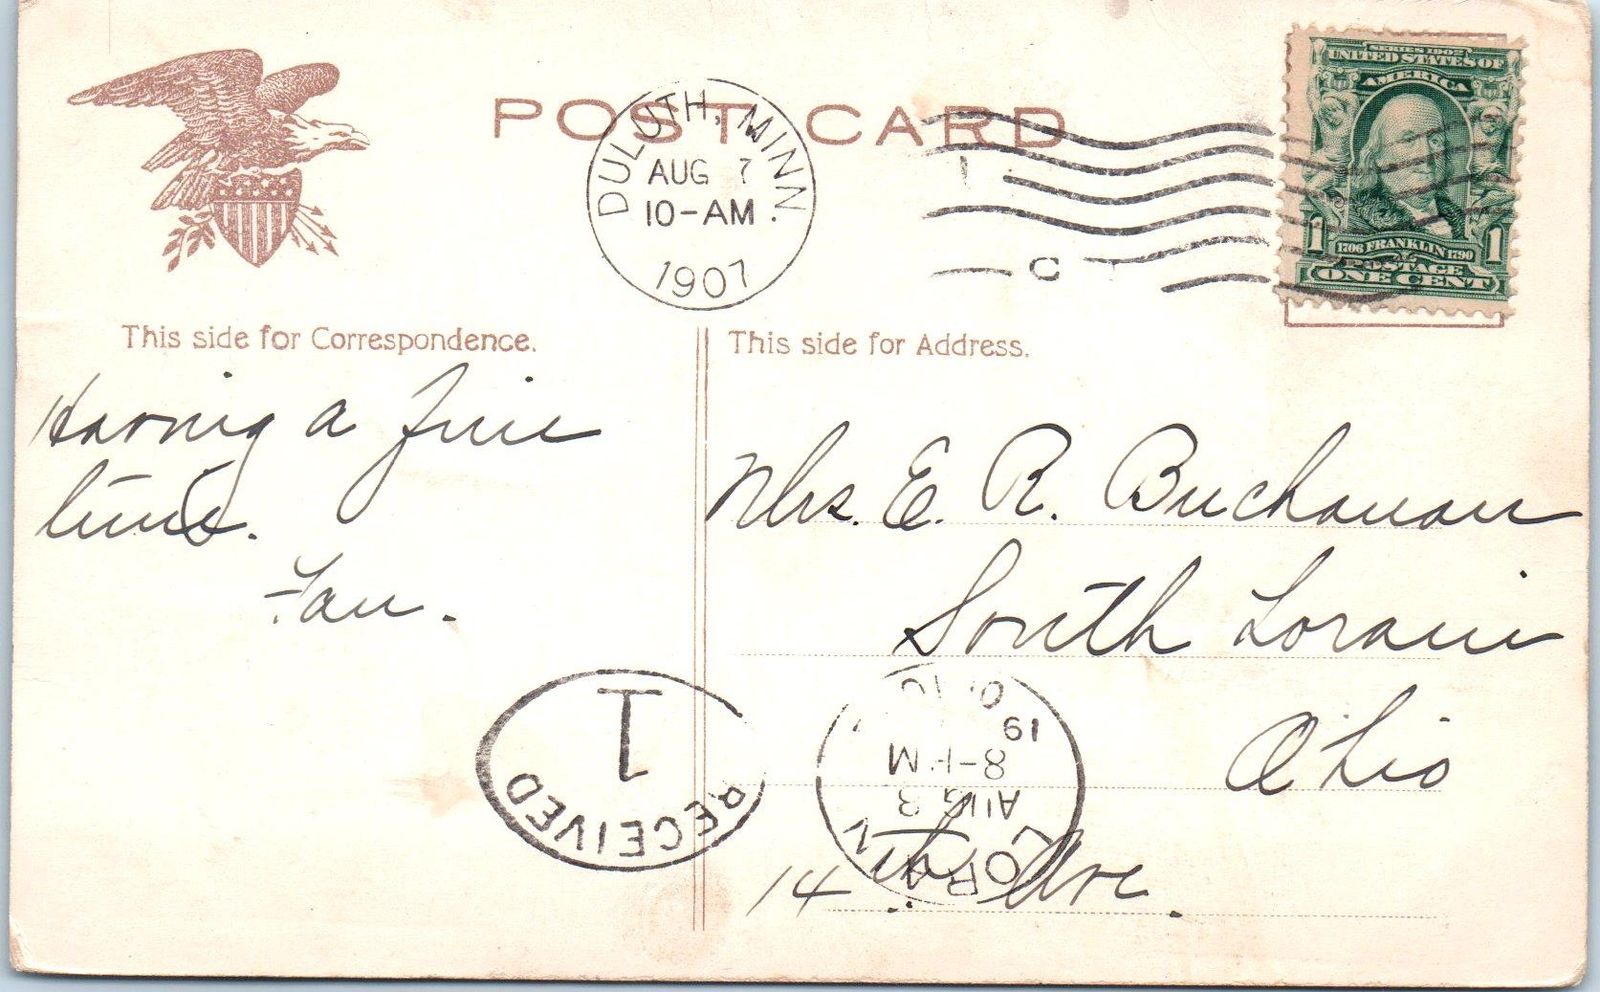 POST CARD
DULUTH, MINN.
AUG 7
10-AM
1907
C
SERIES 1902
UNITED STATES OF
AMERICA
1706 FRANKLIN 1790
1 1
POSTAGE
ONE CENT
This side for Correspondence.
Having a fine
time.
Fan.
This side for Address.
Mrs. E. R. Buchanan
South Lorain
Ohio
14th Ave.
RECEIVED
1
LORAIN
AUG 8
8-PM
19